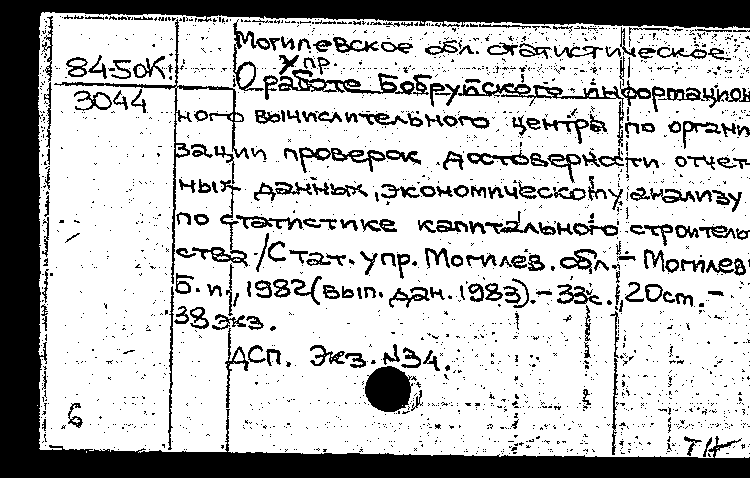 Могилевское обл. статистическое
упр.
84-5ок
3044
О работе Бобруйского информацион
ного вычислительного центра по органи
зации проверок достоверности отчет-
ных данных, экономическому анализу
по статистике капитального строитель
ства / Стат. упр. Могилев. обл. - Могилев
Б. и., 1982 (вып. дан. 1983). - 33 с., 20 см. -
38 экз.
ДСП. Экз. №34.
6